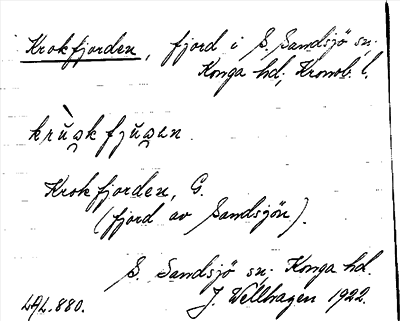 Krokfjorden, fjord i S. Sandsjö sn.
Konga hd; Kronob. l.
krùa̯kfju̯a̯en
Krokfjorden, G.
(fjord av Sandsjön).
S. Sandsjö sn; Konga hd.
LAL. 880. J. Wellhagen 1922.